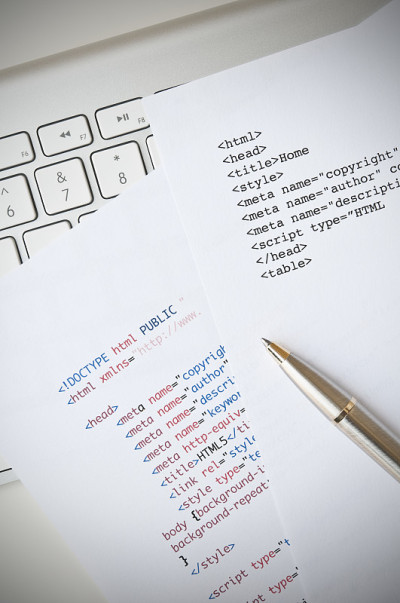 F6
F7
F8
^
6
&
7
*
8
<html>
<head>
<title>Home
<style>
<meta name="copyright"
<meta name="author" co
<meta name="descripti
<script type="HTML
</head>
<table>
<!DOCTYPE html PUBLIC "
<html xmlns="http://www.
<head> <meta name="copyrigh
<meta name="author"
<meta name="descri
<meta name="keywor
<meta http-equiv=
<title>HTML5</ti
<link rel="style
<style type="te
body {background-i
background-repeat:
}
</style>
<script type="t
<script type="t